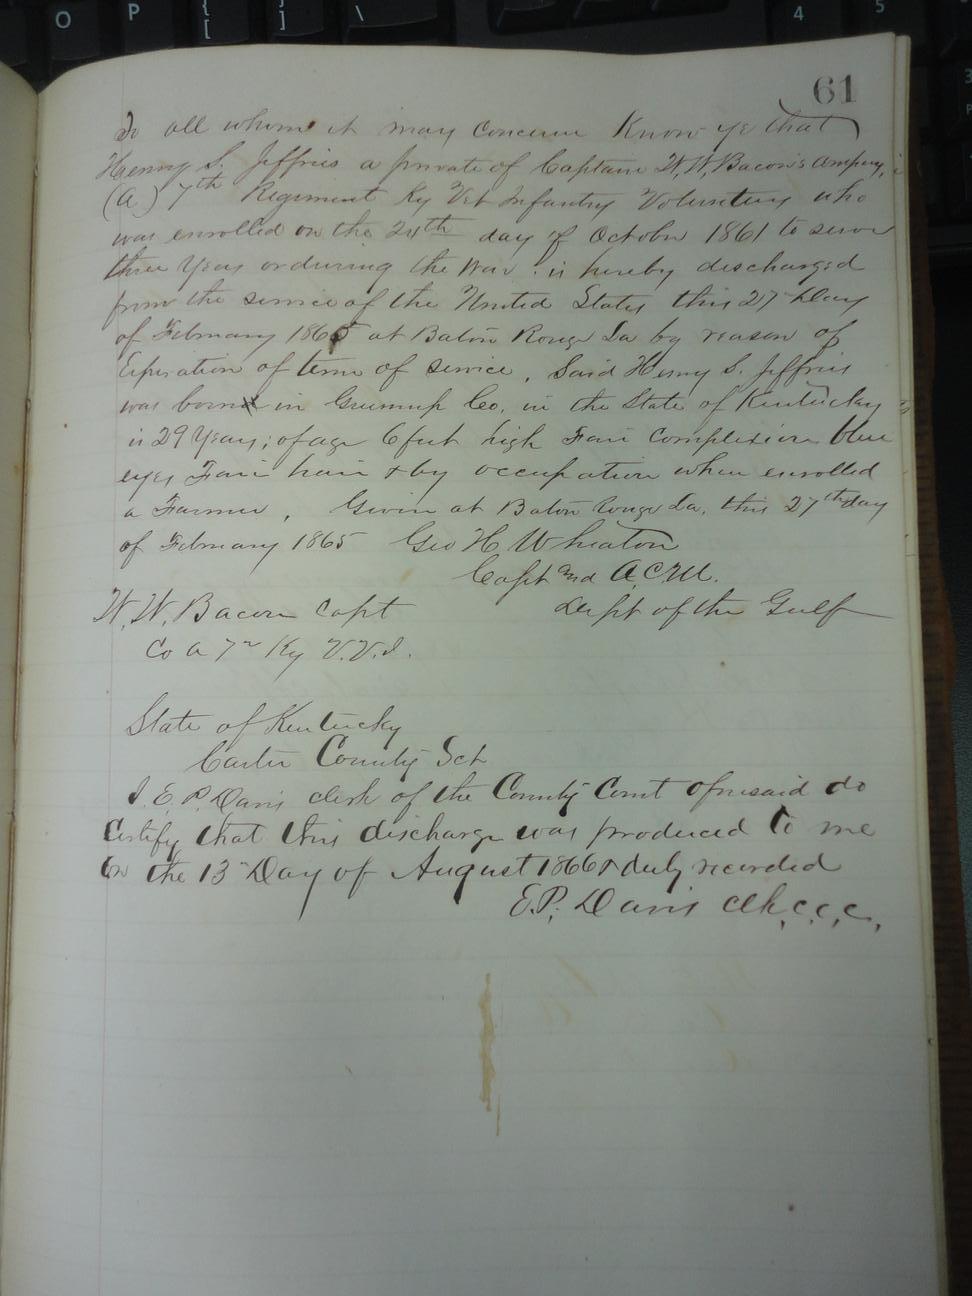 61
To all whom it may concern Know ye that
Henry S. Jeffries a private of Captain W. W. Bacon's Company,
(A) 7th Regiment Ky Vet Infantry Volunteers who
was enrolled on the 24th day of October 1861 to serve
three Years or during the War. is hereby discharged
from the service of the United States this 27th Day
of February 1865 at Baton Rouge La by reason of
Expiration of term of service. Said Henry S. Jeffries
was born in Greenup Co. in the State of Kentucky
is 29 Years; of age 6 feet high Fair complexion blue
eyes Fair hair & by occupation when enrolled
a Farmer. Given at Baton Rouge La. this 27th day
of February 1865 Geo H. Wheaton
Capt and A.C.M.
W. W. Bacon Capt Dept of the Gulf
Co A 7th Ky V.V.I.
State of Kentucky
Carter County Sct
I. E. P. Davis clerk of the County Court aforesaid do
Certify that this discharge was produced to me
On the 13th Day of August 1866 & duly recorded
E. P. Davis Clk, C, C, C,
O P { [ } ] \ 4 5